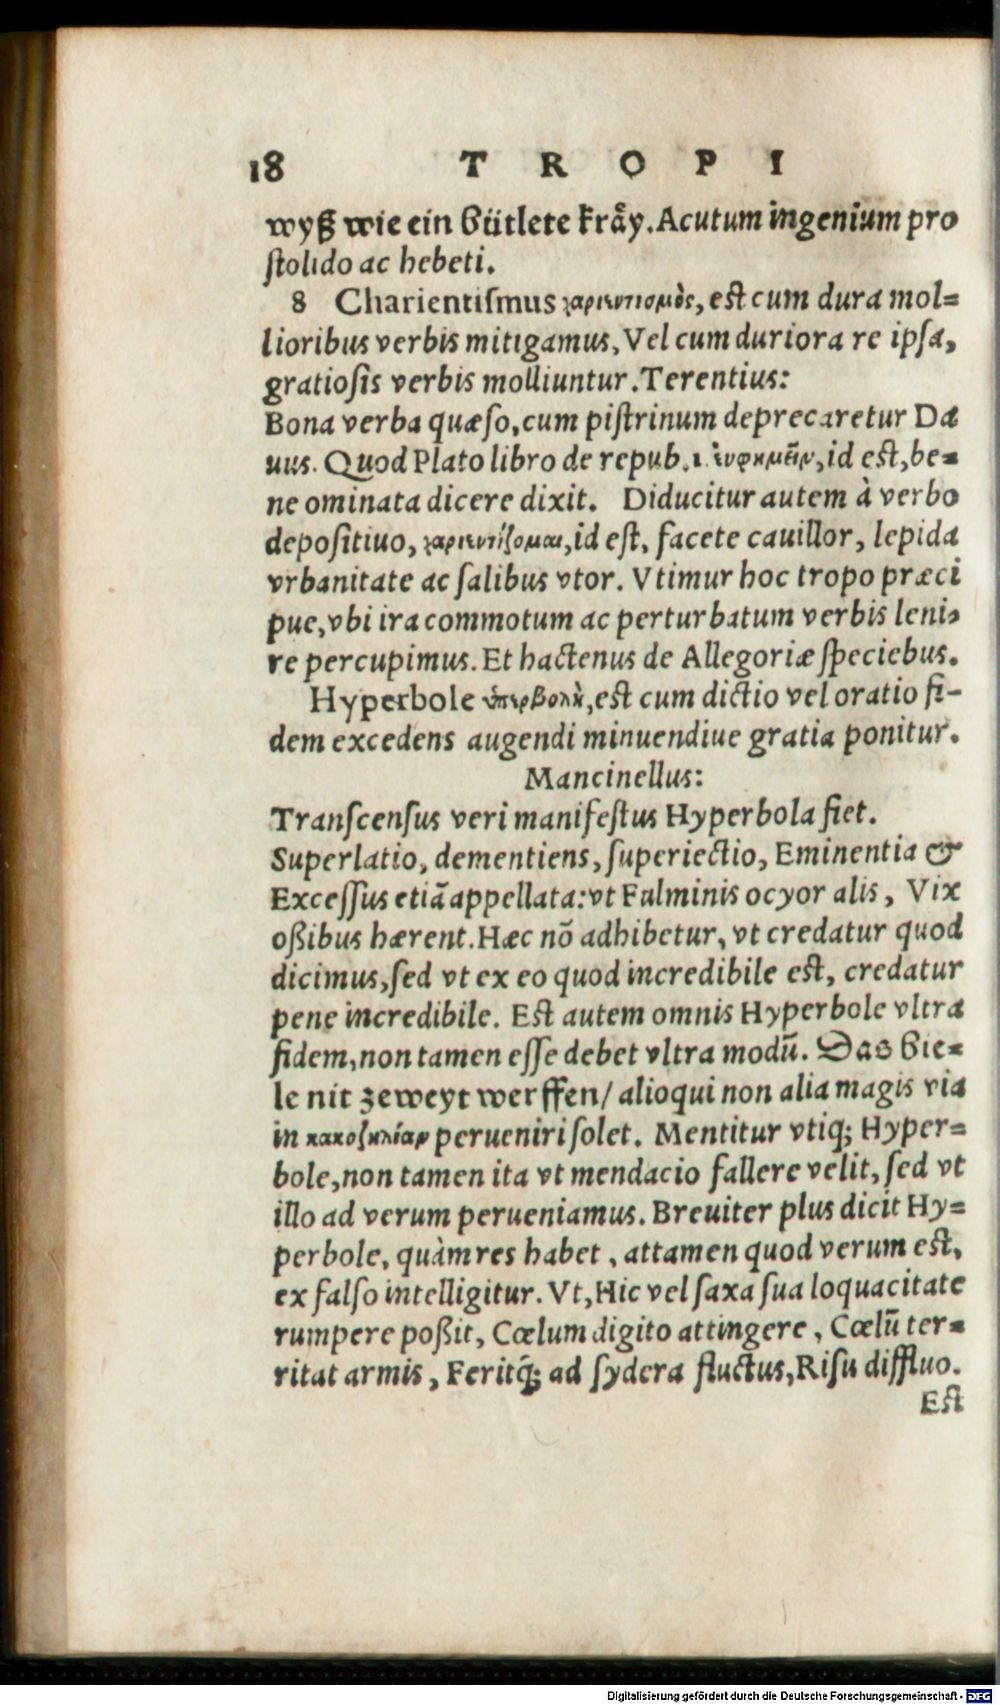 18 TROPI
wyß wie ein bütlete kråy. Acutum ingenium pro
ſtolido ac hebeti.
8 Charientiſmus χαριεντισμὸς, eſt cum dura mol=
lioribus verbis mitigamus, Vel cum duriora re ipſa,
gratioſis verbis molliuntur. Terentius:
Bona verba quæſo, cum piſtrinum deprecaretur Da
uus. Quod Plato libro de repub. 1. ἐυφημεῖν, id eſt, be=
ne ominata dicere dixit. Diducitur autem à verbo
depoſitiuo, χαριεντίζομαι, id eſt, facete cauillor, lepida
vrbanitate ac ſalibus vtor. Vtimur hoc tropo præci
pue, vbi ira commotum ac perturbatum verbis leni=
re percupimus. Et hactenus de Allegoriæ ſpeciebus.
Hyperbole ὑπερβολὴ, eſt cum dictio vel oratio fi-
dem excedens augendi minuendiue gratia ponitur.
Mancinellus:
Tranſcenſus veri manifeſtus Hyperbola fiet.
Superlatio, dementiens, ſuperiectio, Eminentia &
Exceſſus etiā appellata: vt Fulminis ocyor alis, Vix
oßibus hærent. Hæc nō adhibetur, vt credatur quod
dicimus, ſed vt ex eo quod incredibile eſt, credatur
pene incredibile. Eſt autem omnis Hyperbole vltra
fidem, non tamen eſſe debet vltra modū. Das bie=
le nit zeweyt werffen/ alioqui non alia magis via
in κακοζηλίαν perueniri ſolet. Mentitur vtiq; Hyper=
bole, non tamen ita vt mendacio fallere velit, ſed vt
illo ad verum perueniamus. Breuiter plus dicit Hy=
perbole, quàm res habet, attamen quod verum eſt,
ex falſo intelligitur. Vt, Hic vel ſaxa ſua loquacitate
rumpere poßit, Cœlum digito attingere, Cœlū ter=
ritat armis, Feritq́; ad ſydera fluctus, Riſu diffluo.
Eſt
Digitalisierung gefördert durch die Deutsche Forschungsgemeinschaft - DFG